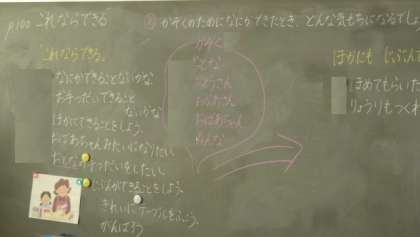 p100 これならできる
かぞくのためになにかできたとき、どんな気もちになるでしょ
「これならできる。」
なにかできることないかな
お手つだいできること
ないかな
ほかにできることをしよう。
おばあちゃんみたいになりたい
おてつだいをしたい。
じぶんができることをしよう。
きれいにテーブルをふこう。
がんばろう
かぞく
おとうさん
おかあさん
おばあちゃん
みんな
ほかにも じぶんで
ほめてもらいた
りょうりもつくれ